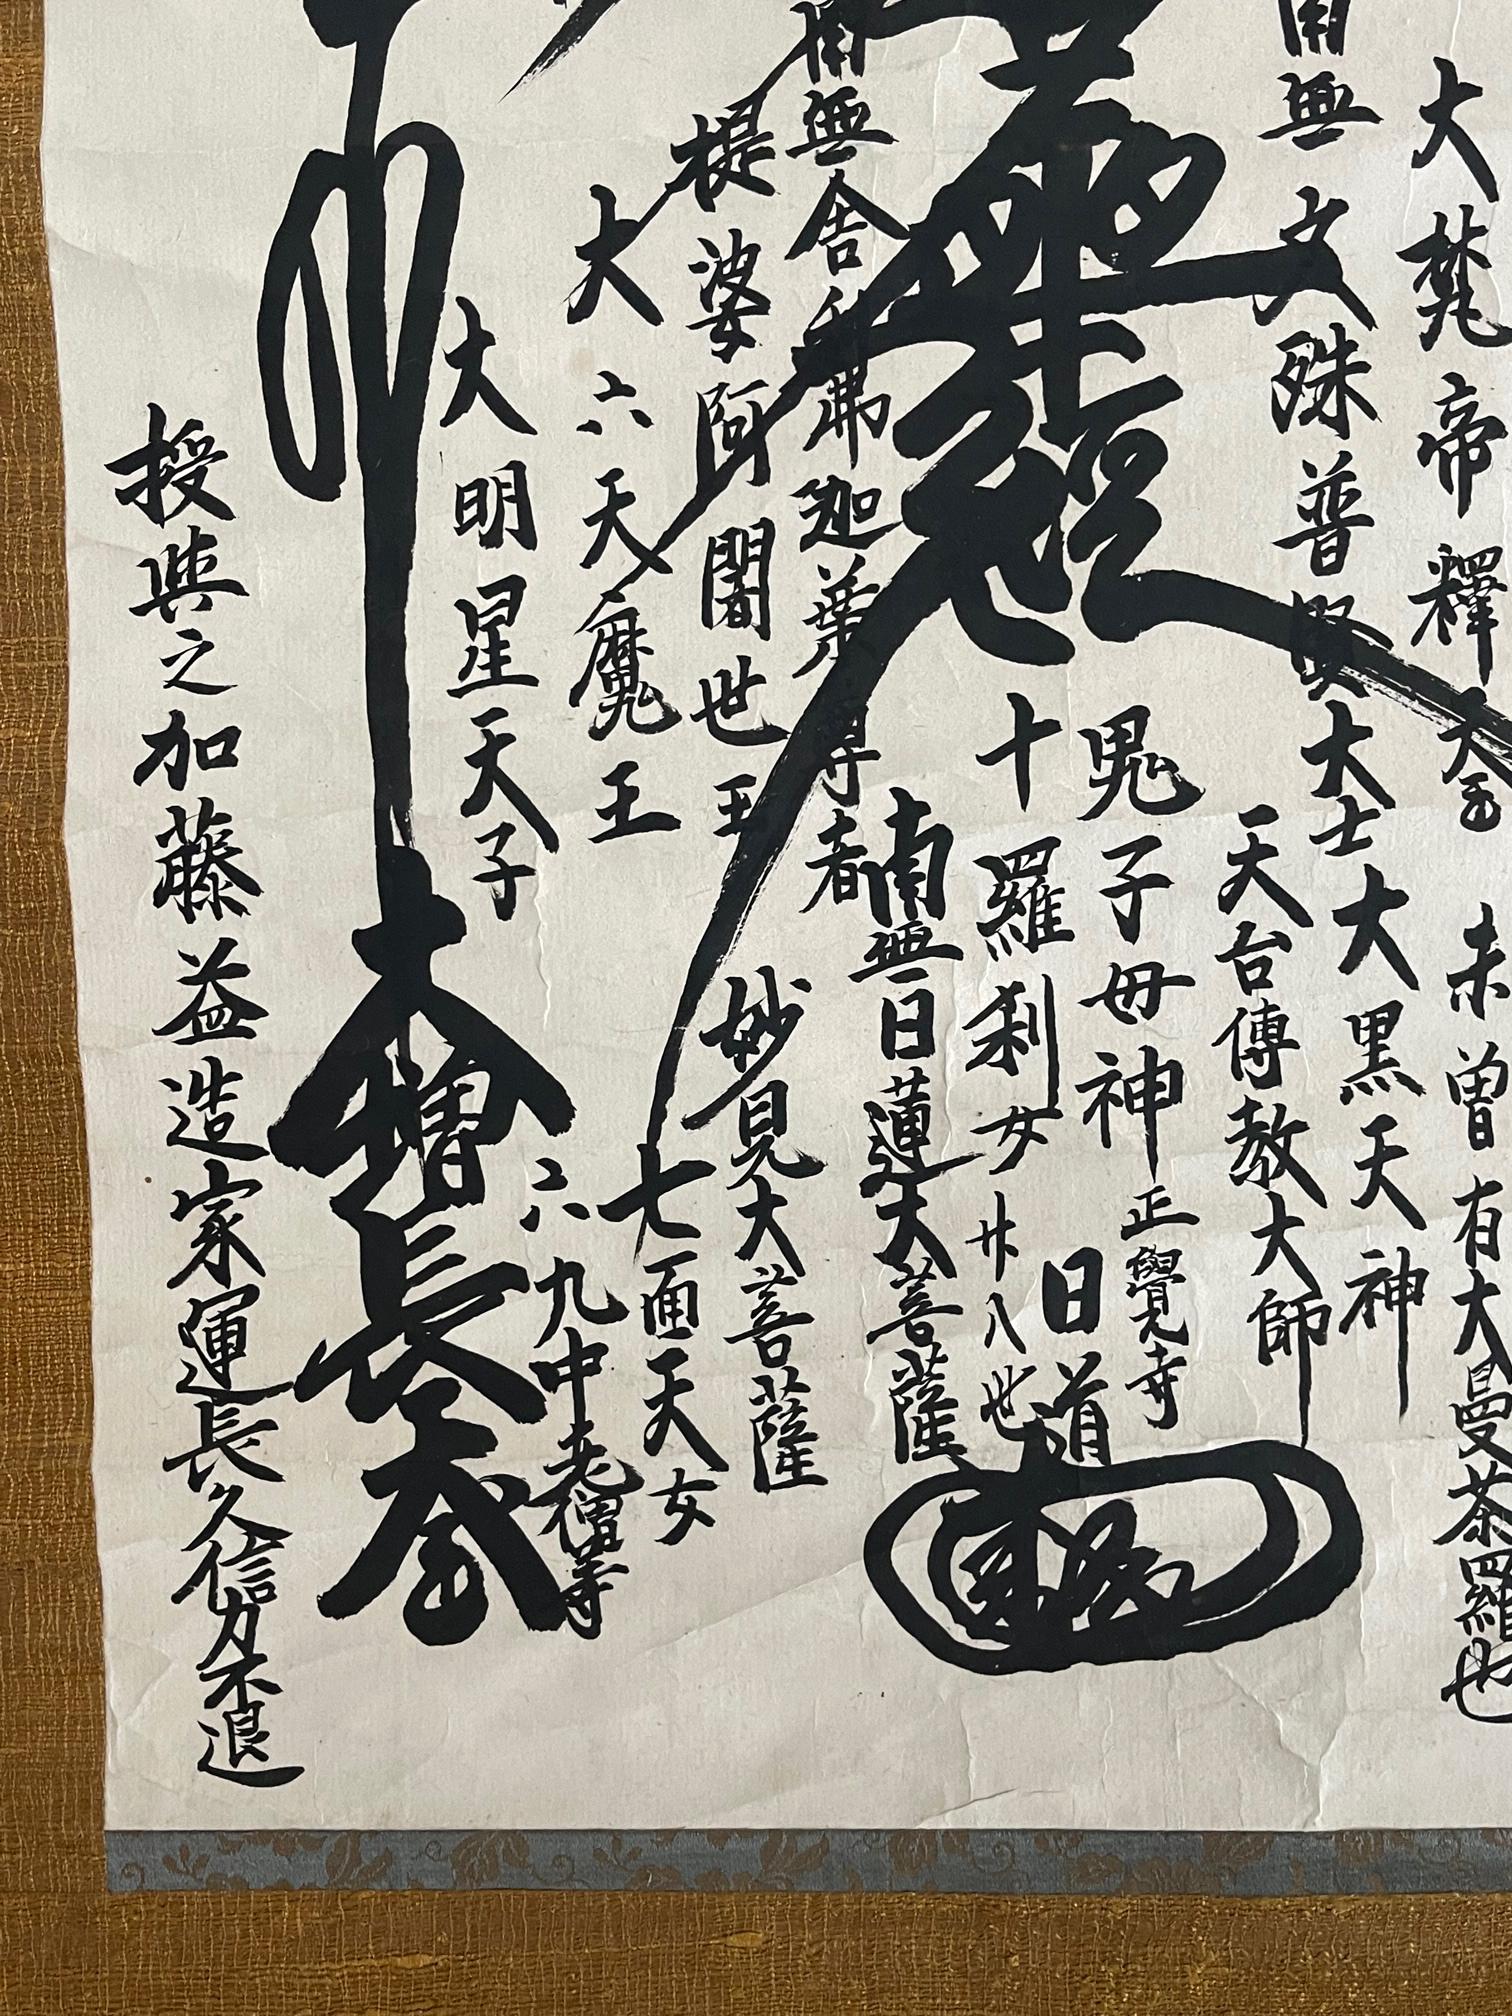 未曽有大曼荼羅也
大梵帝釋天王
大黒天神
南無文殊普賢大士
天台傳教大師
鬼子母神
正覺寺
經
日道
十羅刹女
廿八世
南無日蓮大菩薩
南無舎利弗迦葉尊者
妙見大菩薩
提婆阿闍世王
七面天女
大六天魔王
六九中老僧等
大明星天子
大増長天王
授與之加藤益造家運長久信力不退